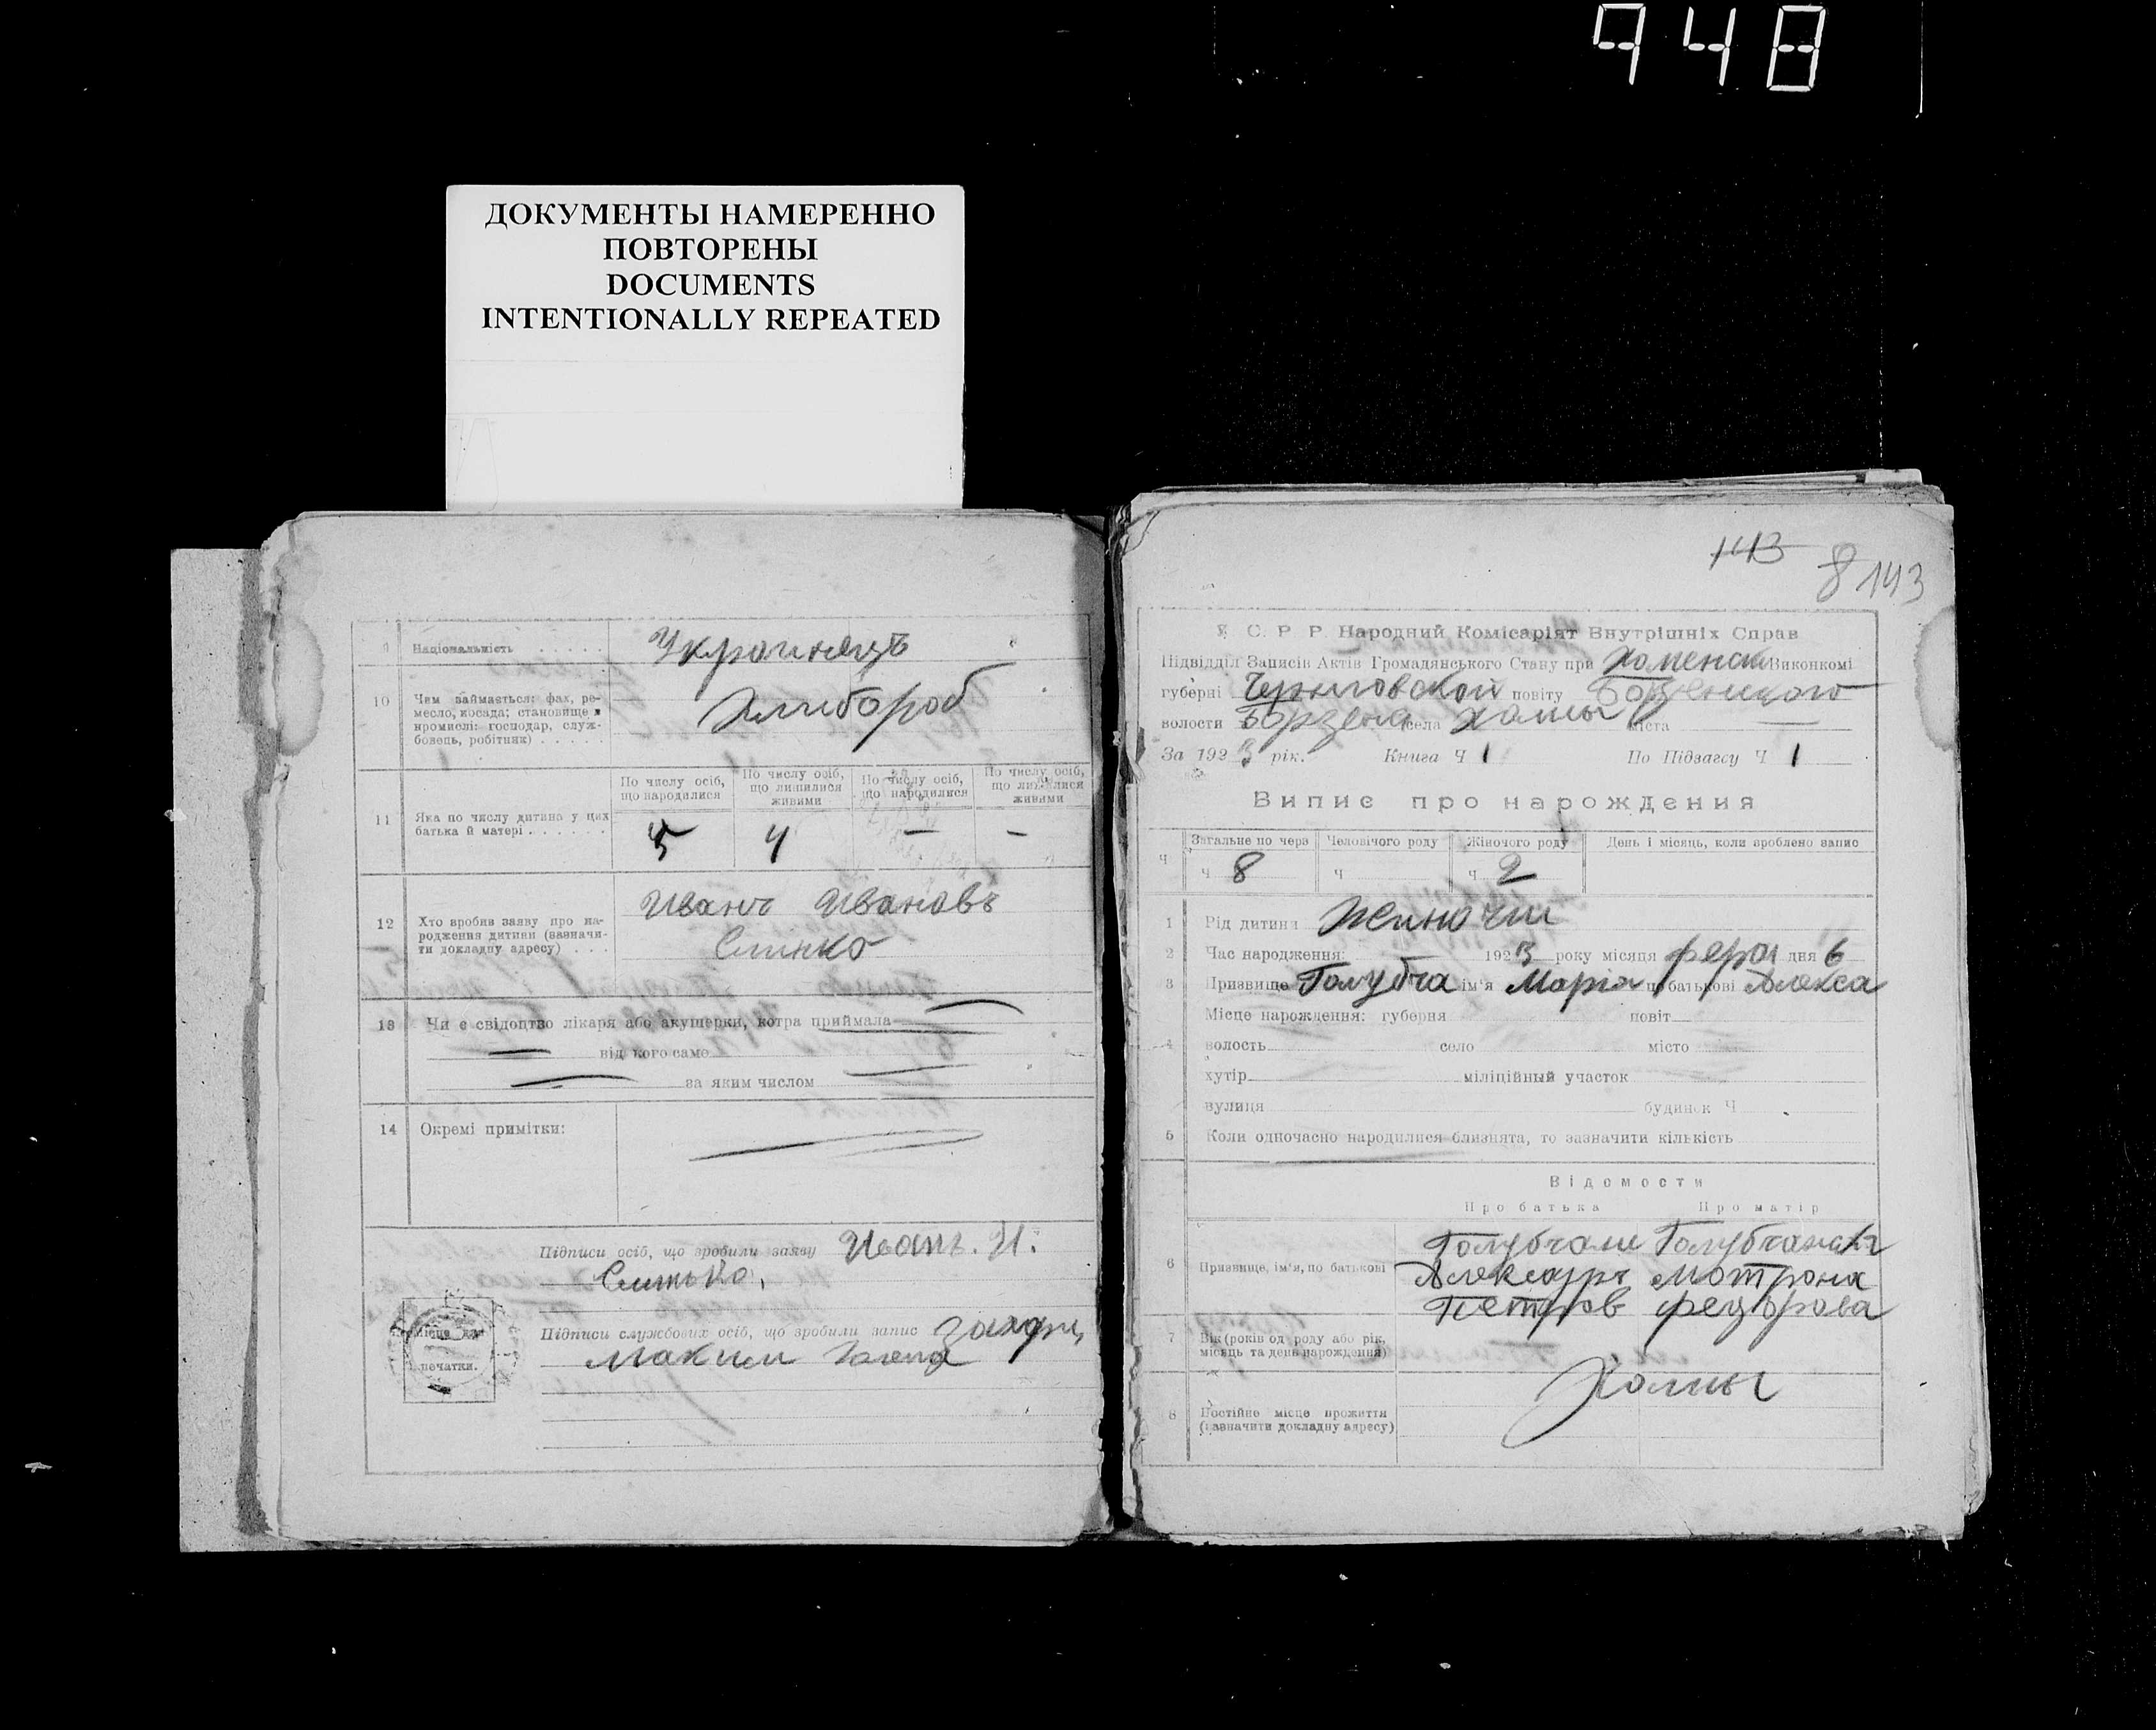 948
ДОКУМЕНТЫ НАМЕРЕННО
ПОВТОРЕНЫ
DOCUMENTS
INTENTIONALLY REPEATED
9 Національність Украинецъ
10 Чим займається: фах, ре-
месло, посада; становище в
промислі: господар, служ-
бовець, робітник) Хлибороб
По числу осіб, що народилися
По числу осіб, що лишилися живими
По числу осіб, що народилися
По числу осіб, що лишилися живими
11 Яка по числу дитина у цих
батька й матері 5 4 — —
12 Хто зробив заяву про на-
родження дитини (зазначи-
ти докладну адресу)
Иванъ Ивановъ
Слинко
13 Чи є свідоцтво лікаря або акушерки, котра приймала
від кого саме
за яким числом
14 Окремі примітки:
Підписи осіб, що зробили заяву Иванъ. И.
Слинько.
Підписи службових осіб, що зробили запис
Максим
Місце для
печатки.
143
8 143
У. С. Р. Р. Народний Комісаріят Внутрішніх Справ
Підвідділ Записів Актів Громадянського Стану при Виконкомі
губерні Черниговской повіту Борзенского
волости Борзена села Холмы міста —
За 1923 рік. Книга Ч 1 По Підзагсу Ч 1
Випис про нарождення
Загальне по черз Человічого роду Жіночого роду День і місяць, коли зроблено запис
Ч Ч 8 Ч Ч 2
1 Рід дитини Жиночи
2 Час народження: 1923 року місяця дня 6
3 Призвище Голубча ім'я Марія по батькові Алекса
4 Місце нарождення: губерня повіт
волость село місто
хутір міліційный участок
вулиця будинок Ч
5 Коли одночасно народилися близнята, то зазначити кількість
Відомости
Про батька Про матір
6 Призвище, ім'я, по батькові
Александръ Мотрона
Петров Федорова
7 Вік (років од роду або рік,
місяць та день нарождення)
8 Постійне місце прожиття
(зазначити докладну адресу)
Холмы